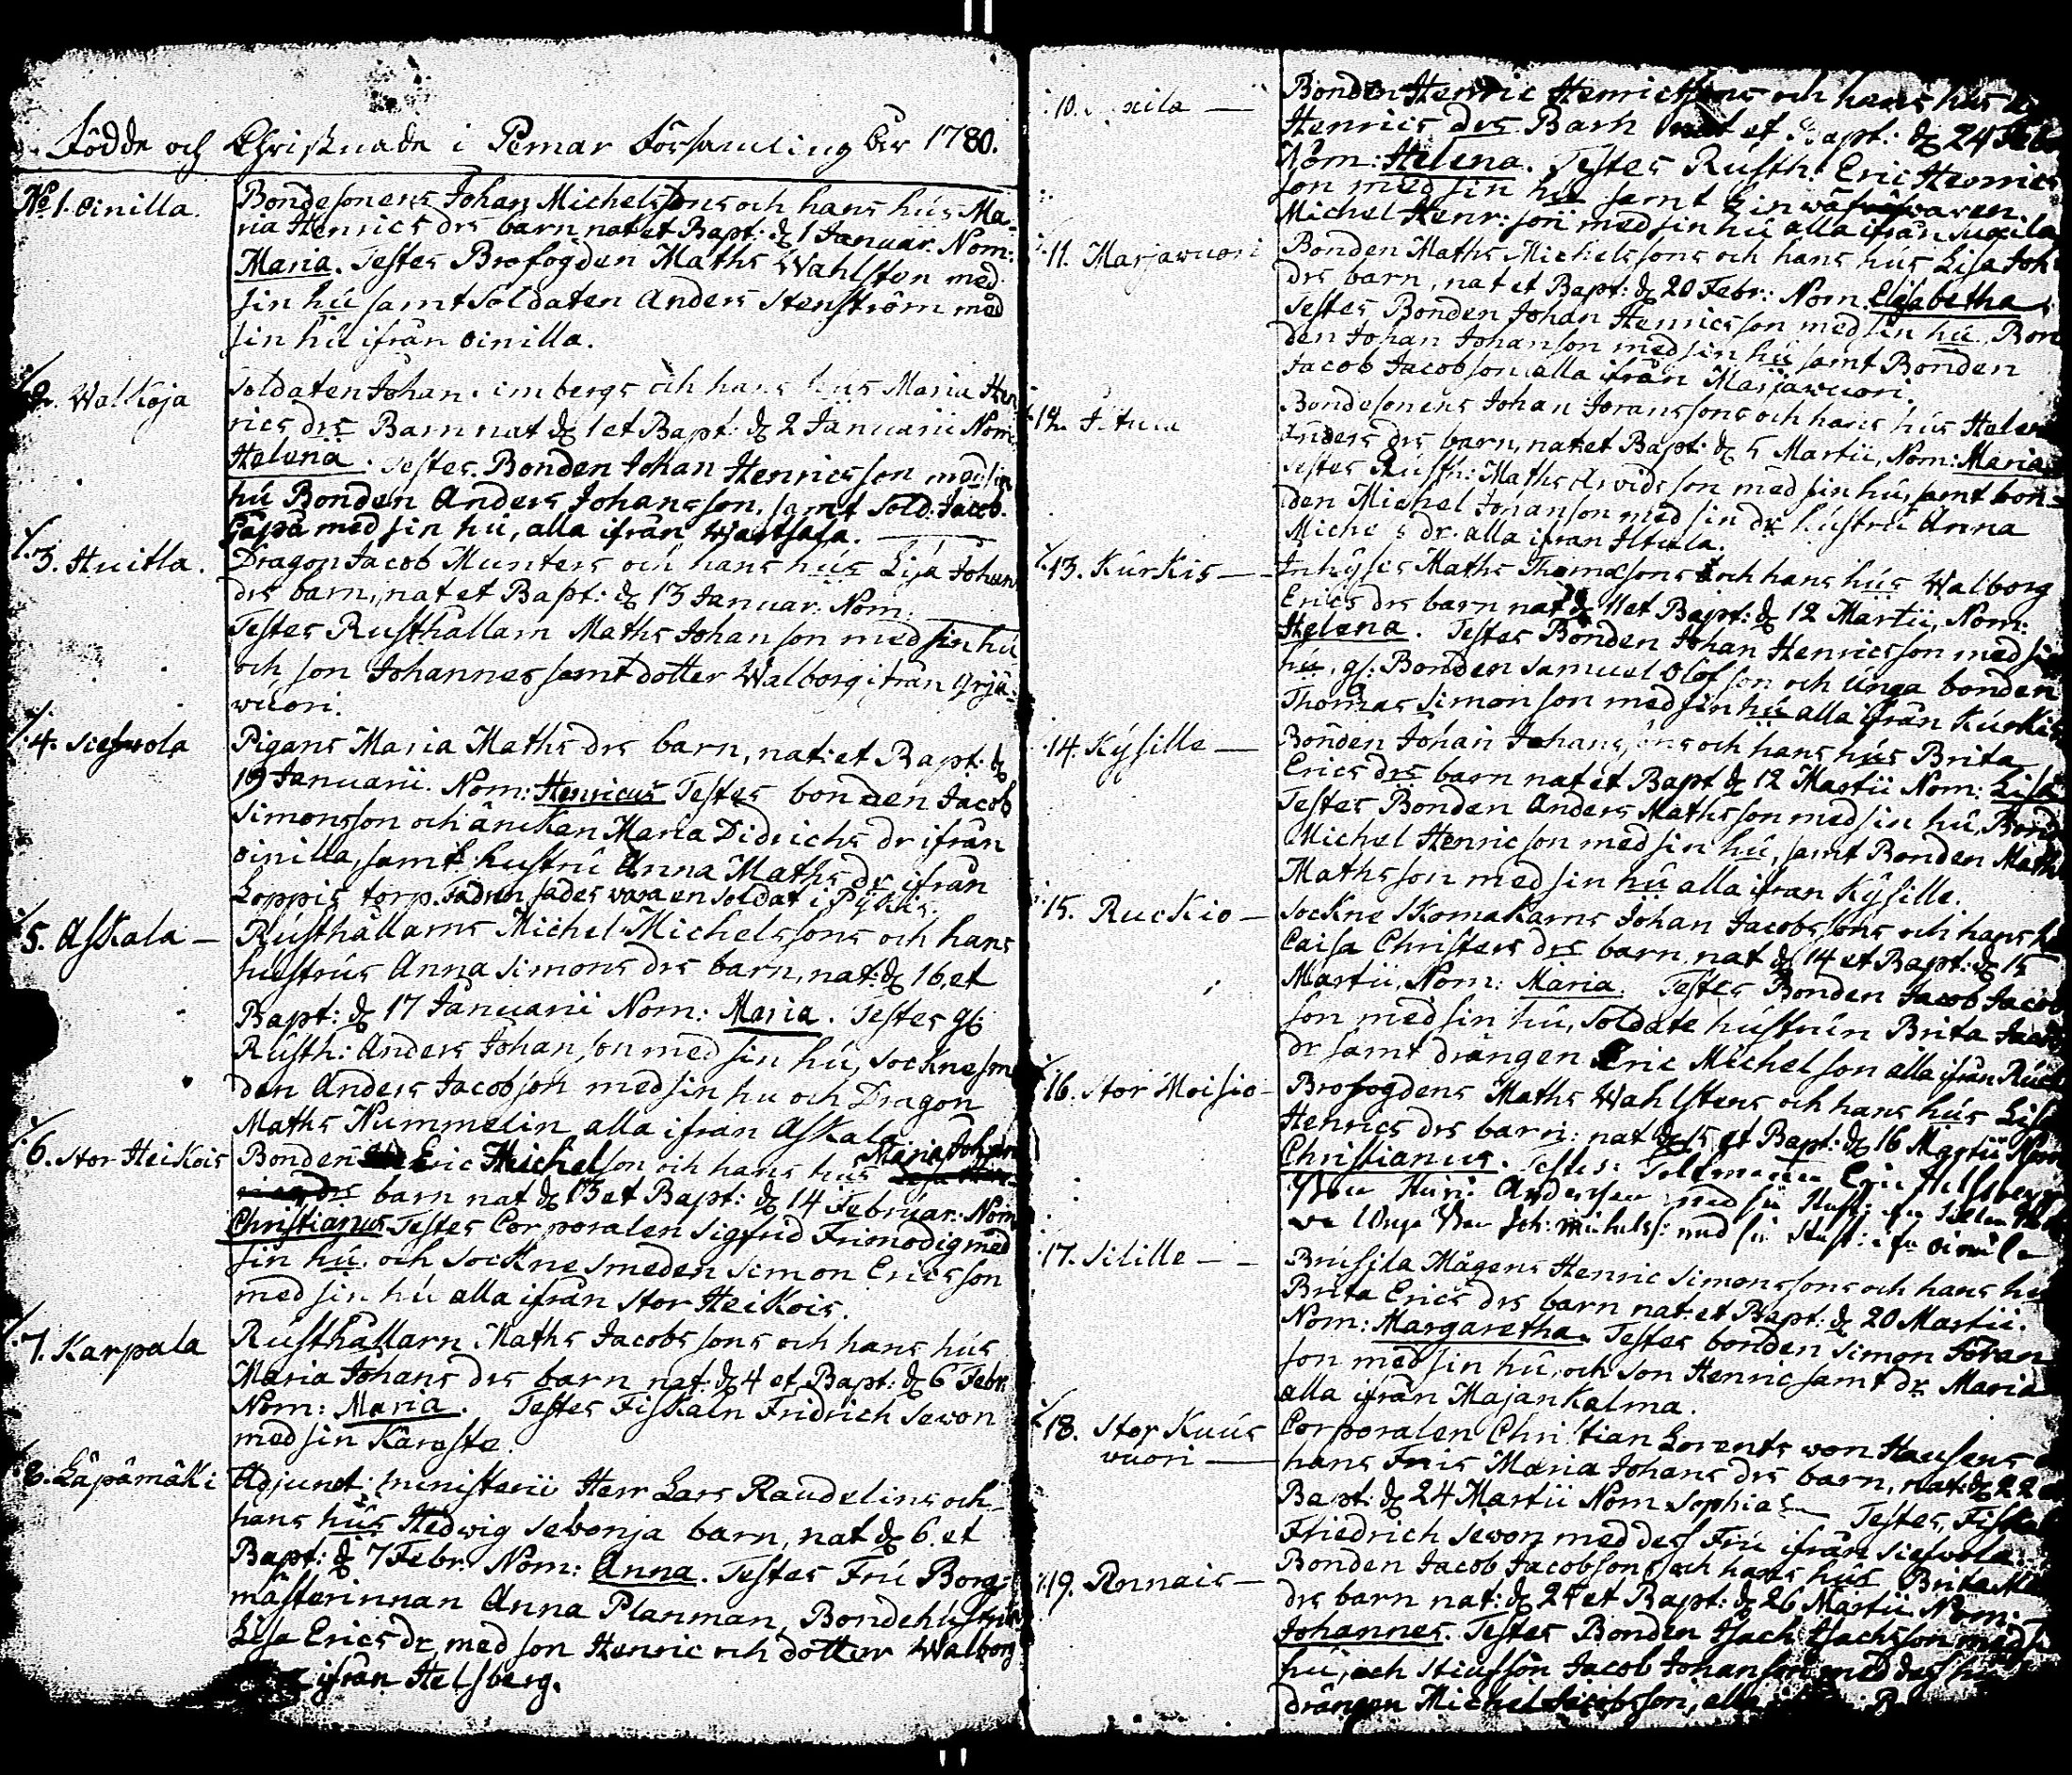 Födde och Christnade i Pemar Församling åhr 1780.
No 1. Oinilla.
Bondesonens Johan Michelssons och hans hús Ma-
ria Henrics drs barn nat et Bapt: d. 1 Januar. Nom:
Maria. Testes Brofogden Maths Wahlsten med
sin hú samt Soldaten Anders Stenström med
sin hú ifrån Oinilla.
2. Walkoja
Soldaten Johan bergs och hans hús Maria Hen
rics drs Barn nat d. 1 et Bapt: d. 2 Januarii Nom:
Helena. Testes Bonden Johan Henricsson med sin
hú Bonden Anders Johansson, samt Sold: Jacob
med sin hú, alla ifrån
3. Huitla.
Dragon Jacob Munters och hans hús Lisa Johans
drs barn, nat et Bapt: d. 13 Januar. Nom:
Testes Rusthållarn Maths Johanson med sin hú
och son Johannes samt dotter Walborg ifrån Yrjä-
wuori.
4.
Pigans Maria Maths drs barn, nat: et Bapt: d.
19 Januarii. Nom: Henricus Testes bonden Jacob
Simonsson och änckan Maria Didrichs dr ifrån
Oinilla, samt hustrú Anna Maths dr ifrån
Loppis torp. Fadren sades vara en soldat i
5. Askala —
Rústhållarns Michel Michelssons och hans
hustrús Anna Simons drs barn, nat: d. 16. et
Bapt: d. 17 Januarii Nom: Maria. Testes
Rústh: Anders Johanson med sin hú, Socknesme
den Anders Jacobson med sin hu och Dragon
Maths Nummelin alla ifrån Askala.
6. Stor Heikois
Bonden Eric Michelson och hans hús Maria Johan
drs barn nat d. 13 et Bapt: d. 14 Februar: Nom
Christianus Testes Corporalen Sigfrid Frimodig med
sin hú. och Sockne smeden Simon Ericsson
med sin hú alla ifrån Stor Heikois.
7. Karpala
Rústhållarn Maths Jacobssons och hans hús
Maria Johans drs barn nat: d. 4 et Bapt: d. 6 Febr.
Nom: Maria. Testes Fiskaln Fridrich Sewon
med sin Käraste.
8. Läpämäki
Adjunct: ministerii Herr Lars Raudelins och
hans hús Hedwig Sevonja barn, nat d. 6. et
Bapt: d. 7 Febr: Nom: Anna. Testes Frú Borg-
mästerinnan Anna Planman, Bondehústrún
Lisa Erics dr, med son Henric och dotter Walborg
ifrån Helsberg.
10.
Bonden Henric Henricssons och hans hus
Henrics drs Barn nat et Bapt: d. 24 Feb
Nom: Helena. Testes Rusth: Eric Henrics
son med sin hú samt
Michel Henr: son med sin hú alla ifrån
11. Marjawuori
Bonden Maths Michelssons och hans hús Lisa Joh
drs barn, nat et Bapt: d. 20 Febr: Nom. Elisabetha
Testes Bonden Johan Henricsson med sin hú, Bon
den Johan Johanson med sin hú samt Bonden
Jacob Jacobson alla ifrån Marjawuori.
12.
Bondesonens Johan Joranssons och hans hús Helen
Anders drs barn, nat et Bapt: d. 5 Martii, Nom: Maria
Testes Rústh: Maths Arvidsson med sin hú, samt bon-
den Michel Johanson med sin dr hústrú Anna
Michels dr. alla ifrån Iltula.
13. Kúrkis —
Inhyses Maths Thomæsons och hans hús Walborg
Erics drs barn nat d. 11 et Bapt: d. 12 Martii, Nom:
Helena. Testes Bonden Johan Henricsson med sin
hú, Bonden Samuel Olofson och únga bonden
Thomas Simonson med sin hú alla ifrån Kúrkis
14. Kýsille —
Bonden Johan Johanssons och hans hús Brita
Erics drs barn nat et Bapt d. 12 Martii Nom: Lisa
Testes Bonden Anders Mathsson med sin hú, Bond
Michel Henricson med sin hú, samt Bonden Maths
Mathsson med sin hú alla ifrån Kýsille.
15. Ruckio —
Sockne Skomakarns Johan Jacobssons och hans h
Caisa Christers drs barn, nat d. 14 et Bapt: d. 15
Martii, Nom: Maria. Testes Bonden Jacob Jacob
son med sin hú, Soldate hústrún Brita
dr samt drängen Eric Michelson alla ifrån Rúck
16. Stor Moisio —
Brofogdens Maths Wahlstens och hans hús Lisa
Henrics drs barn: nat d. 15 et Bapt: d. 16 Martii Nom
Christianus. Testes: Eric Helsberg
Joh: Michelss: med sin Hust: ifr Oinila
17. Silille — —
Brúsila Mågens Henric Simonssons och hans hu
Brita Erics drs barn nat: et Bapt: d. 20 Martii.
Nom: Margaretha. Testes bonden Simon Jöran
son med sin hú, och son Henric samt dr Maria
alla ifrån Majankalma.
18. Stor Kuús
wuori —
Corporalen Christian Lorents von Hausens
hans Frús Maria Johans drs barn, nat: d. 22
Bapt: d. 24 Martii Nom Sophia — Testes, Fiskal
Friedrich Sewon med dess Frú ifrån
19. Rnnais —
Bonden Jacob Jacobsons och hans hús Brita
drs barn nat: d. 25 et Bapt: d. 26 Martii. Nom:
Johannes. Testes Bonden Isach Isachsson med
hú, och Stiufson Jacob Johanson med dess
drängen Michel Jacobsson, alla